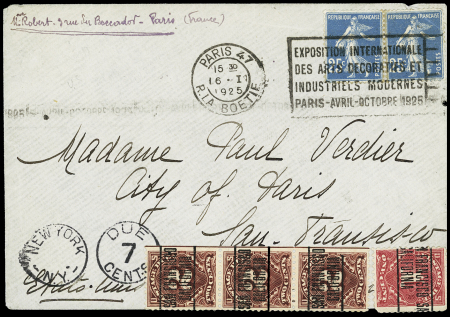 Mr Robert. 3 rue du Boccador - Paris (France)
REPUBLIQUE FRANCAISE REPUBLIQUE FRANCAISE
25 25
PARIS 47
15 30
16 - II
1925
R. LA BOETIE
EXPOSITION INTERNATIONALE
DES ARTS DECORATIFS ET
INDUSTRIELS MODERNES
PARIS-AVRIL-OCTOBRE 1925
Madame Paul Verdier
City of Paris
San-Fransisco
NEW YORK
N.Y.
DUE
7
CENTS
Etats-Unis